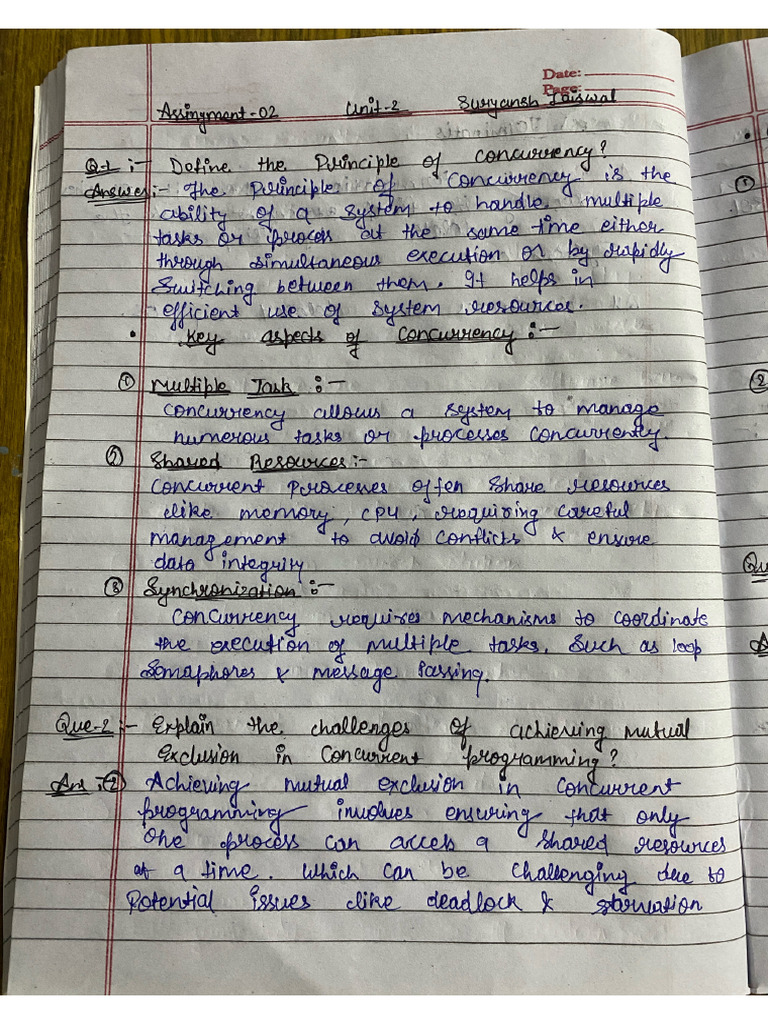 Date:
Page:
Assingment-02 Unit-2 Suryansh Jaiswal
Q-1 :- Define the Principle of concurrency?
Answer:- The Principle of Concurrency is the
ability of a system to handle multiple
tasks or process at the same time either
through simultaneous execution or by rapidly
Switching between them. It helps in
efficient use of system resources.
• Key aspects of concurrency :-
① Multiple Task :-
Concurrency allows a system to manage
numerous tasks or processes concurrently.
② Shared Resources:-
Concurrent Processes often share resources
like memory, CPU, requiring careful
management to avoid conflicts & ensure
data integrity
③ Synchronization :-
Concurrency requires mechanisms to coordinate
the execution of multiple tasks. Such as loop
Semaphores & message Passing.
Que-2 :- Explain the challenges of achieving mutual
Exclusion in Concurrent programming?
Ans :- ② Achieving mutual exclusion in concurrent
programming involves ensuring that only
One process can access a shared resources
at a time. Which can be challenging due to
Potential issues like deadlock & starvation
①
②
Qu